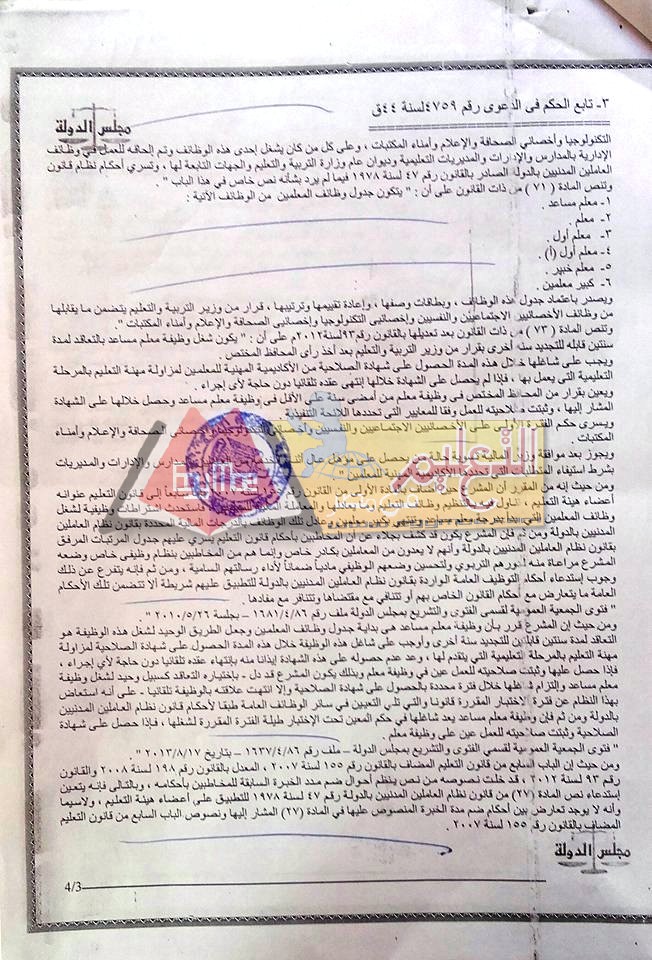 ٣- تابع الحكم فى الدعوى رقم ٤٧٥٩ لسنة ٤٤ق
مجلس الدولة
التكنولوجيا وأخصائي الصحافة والإعلام وأمناء المكتبات ، وعلى كل من كان يشغل إحدى هذه الوظائف وتم إلحاقه للعمل في وظائف
الإدارية بالمدارس والإدارات والمديريات التعليمية وديوان عام وزارة التربية والتعليم والجهات التابعة لها ، وتسري أحكام نظام قانون
العاملين المدنيين بالدولة الصادر بالقانون رقم ٤٧ لسنة ١٩٧٨ فيما لم يرد بشأنه نص خاص في هذا الباب "
وتنص المادة ( ٧١ ) من ذات القانون على أن : " يتكون جدول وظائف المعلمين من الوظائف الآتية :
١- معلم مساعد .
٢- معلم .
٣- معلم أول .
٤- معلم أول (أ).
٥- معلم خبير .
٦- كبير معلمين .
ويصدر باعتماد جدول هذه الوظائف ، وبطاقات وصفها ، وإعادة تقييمها وترتيبها ، قرار من وزير التربية والتعليم يتضمن ما يقابلها
من وظائف الأخصائيين الاجتماعيين والنفسيين وإخصائيى التكنولوجيا وإخصائيى الصحافة والإعلام وأمناء المكتبات "
وتنص المادة ( ٧٣ ) من ذات القانون بعد تعديلها بالقانون رقم ٩٣ لسنة ٢٠١٢م على أن : " يكون شغل وظيفة معلم مساعد بالتعاقد لمدة
سنتين قابله للتجديد سنه أخرى بقرار من وزير التربية والتعليم بعد أخذ رأى المحافظ المختص .
ويجب على شاغلها خلال هذه المدة الحصول على شهادة الصلاحية من الأكاديمية المهنية للمعلمين لمزاولة مهنة التعليم بالمرحلة
التعليمية التي يعمل بها ، فإذا لم يحصل على الشهادة خلالها إنتهى عقده تلقائيا دون حاجة لأى إجراء .
ويعين بقرار من المحافظ المختص في وظيفة معلم من أمضى سنة على الأقل فى وظيفة معلم مساعد وحصل خلالها على الشهادة
المشار إليها ، وثبتت صلاحيته للعمل وفقا للمعايير التى تحددها اللائحة التنفيذية
ويسرى حكم الفقرة الأولى على الأخصائيين الاجتماعيين والنفسيين وأخصائي التكنولوجيا وأخصائي الصحافة والإعلام وأمناء
المكتبات .
ويجوز بعد موافقة وزير المالية تسوية حالة من يحصل على مؤهل عال بالمدارس والإدارات والمديريات
بشرط استيفاء المتطلبات التى تحددها الأكاديمية المهنية للمعلمين
ومن حيث إنه من المقرر أن المشرع حين أضاف بالمادة الأولى من القانون رقم سابعاً إلى قانون التعليم عنوانه
أعضاء هيئة التعليم ، تناول فيه بالتنظيم وظائف التعليم فاستحدث اشتراطات وظيفية لشغل
وظائف المعلمين التي تبدأ بدرجة معلم مساعد وتنتهى بكبير معلمين وعادل تلك الوظائف بالدرجات المالية المحددة بقانون نظام العاملين
المدنيين بالدولة ومن ثم فإن المشرع يكون قد كشف بجلاء عن أن المخاطبين بأحكام قانون التعليم يسري عليهم جدول المرتبات المرفق
بقانون نظام العاملين المدنيين بالدولة وأنهم لا يعدون من المعاملين بكادر خاص وإنما هم من المخاطبين بنظام وظيفى خاص وضعه
المشرع مراعاة منه لدورهم التربوي ولتحسين وضعهم الوظيفي مادياً ضماناً لأداء رسالتهم السامية ، ومن ثم فإنه يتفرع عن ذلك
وجوب إستدعاء أحكام التوظيف العامة الواردة بقانون نظام العاملين المدنيين بالدولة للتطبيق عليهم شريطة ألا تتضمن تلك الأحكام
العامة ما يتعارض مع أحكام القانون الخاص بهم أو تتنافى مع مقتضاها وتتنافر مع مفادها .
" فتوى الجمعية العمومية لقسمى الفتوى والتشريع بمجلس الدولة ملف رقم ١٦٨١/٤/٨٦ - بجلسة ٢٠١٠/٥/٢٦ " .
ومن حيث إن المشرع قرر بأن وظيفة معلم مساعد هي بداية جدول وظائف المعلمين وجعل الطريق الوحيد لشغل هذه الوظيفة هو
التعاقد لمدة سنتين قابلتين للتجديد سنة أخرى وأوجب على شاغل هذه الوظيفة خلال هذه المدة الحصول على شهادة الصلاحية لمزاولة
مهنة التعليم بالمرحلة التعليمية التي يتقدم لها ، وعد عدم حصوله على هذه الشهادة إيذانا منه بإنتهاء عقده تلقائيا دون حاجة لأي إجراء ،
فإذا حصل عليها وثبتت صلاحيته للعمل عين في وظيفة معلم وبذلك يكون المشرع قد دل - بإختياره التعاقد كسبيل وحيد لشغل وظيفة
معلم مساعد وإلتزام شاغلها خلال فترة محددة بالحصول على شهادة الصلاحية وإلا انتهت علاقته بالوظيفة تلقائيا - على أنه استعاض
بهذا النظام عن فترة الاختبار المقررة قانونا والتي تلي التعيين في سائر الوظائف العامة طبقا لأحكام قانون نظام العاملين المدنيين
بالدولة ومن ثم فإن وظيفة معلم مساعد يعد شاغلها في حكم المعين تحت الإختبار طيلة الفترة المقررة لشغلها ، فإذا حصل على شهادة
الصلاحية وثبتت صلاحيته للعمل عين على وظيفة معلم .
" فتوى الجمعية العمومية لقسمي الفتوى والتشريع بمجلس الدولة – ملف رقم ١٦٣٧/٤/٨٦ – بتاريخ ٢٠١٣/٨/١٧ ".
ومن حيث إن الباب السابع من قانون التعليم المضاف بالقانون رقم ١٥٥ لسنة ٢٠٠٧ ، المعدل بالقانون رقم ١٩٨ لسنة ٢٠٠٨ والقانون
رقم ٩٣ لسنة ٢٠١٢ ، قد خلت نصوصه من نص ينظم أحوال ضم مدد الخبرة السابقة للمخاطبين بأحكامه ، وبالتالى فإنه يتعين
إستدعاء نص المادة (٢٧) من قانون نظام العاملين المدنيين بالدولة رقم ٤٧ لسنة ١٩٧٨ للتطبيق على أعضاء هيئة التعليم ، ولاسيما
وأنه لا يوجد تعارض بين أحكام ضم مدة الخبرة المنصوص عليها في المادة (٢٧) المشار إليها ونصوص الباب السابع من قانون التعليم
المضاف بالقانون رقم ١٥٥ لسنة ٢٠٠٧ .
مجلس الدولة
4/3
التعليم